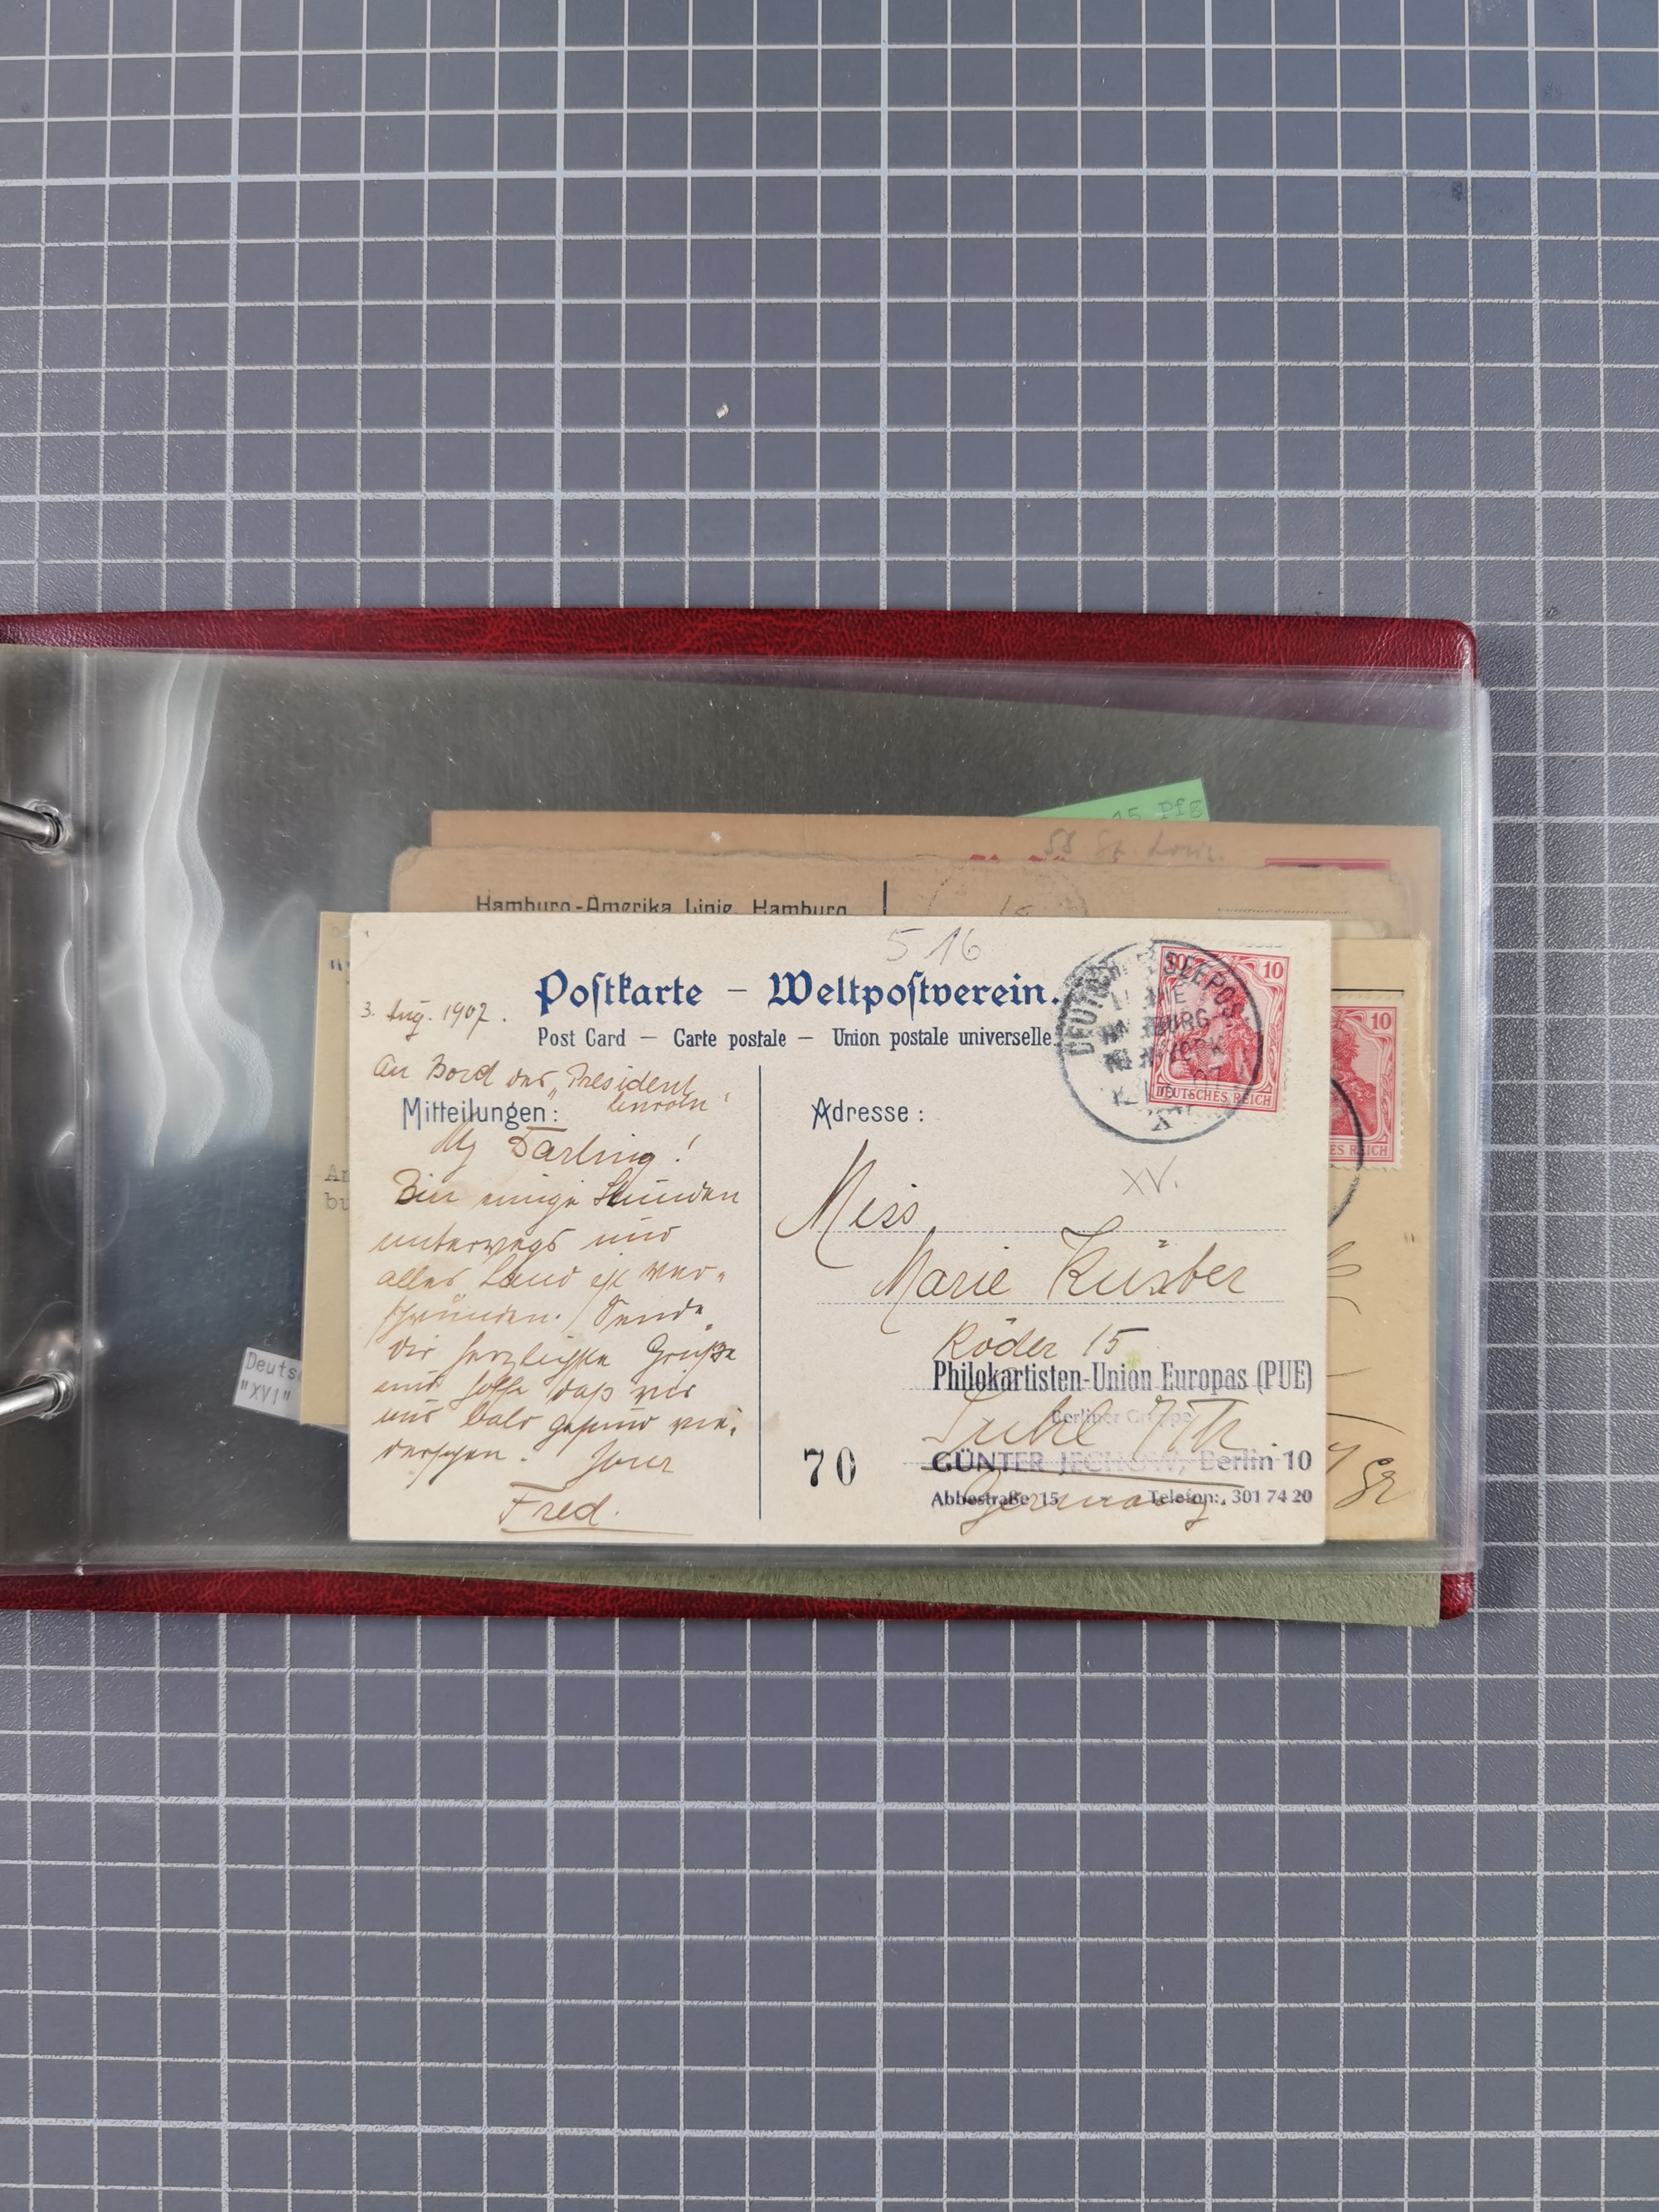 15 Pfg
SS St. Louis.
Hamburg-Amerika Linie, Hamburg
516
Postkarte – Weltpostverein.
Post Card – Carte postale – Union postale universelle
3. Aug. 1907.
An Bord des „President
Lincoln"
Mitteilungen:
My Darling!
Bin einige Stunden
unterwegs und
alles Land ist ver-
schwunden. Sende
Dir herzlichste Grüße
und hoffe daß wir
uns bald gesund wie-
dersehen. Your
Fred.
DEUTSCHE SEEPOST
LINIE
HAMBURG-
NEW YORK
07
XV
10 10
DEUTSCHES REICH
Adresse:
XV.
Miss
Marie Küster
Röder 15
Philokartisten-Union Europas (PUE)
Berliner Gruppe
Suhl i/Th.
70
GÜNTER JECHOW, Berlin 10
Abbestraße 15 Telefon: 301 74 20
Germany
10
ES REICH
Deuts
"XVI"